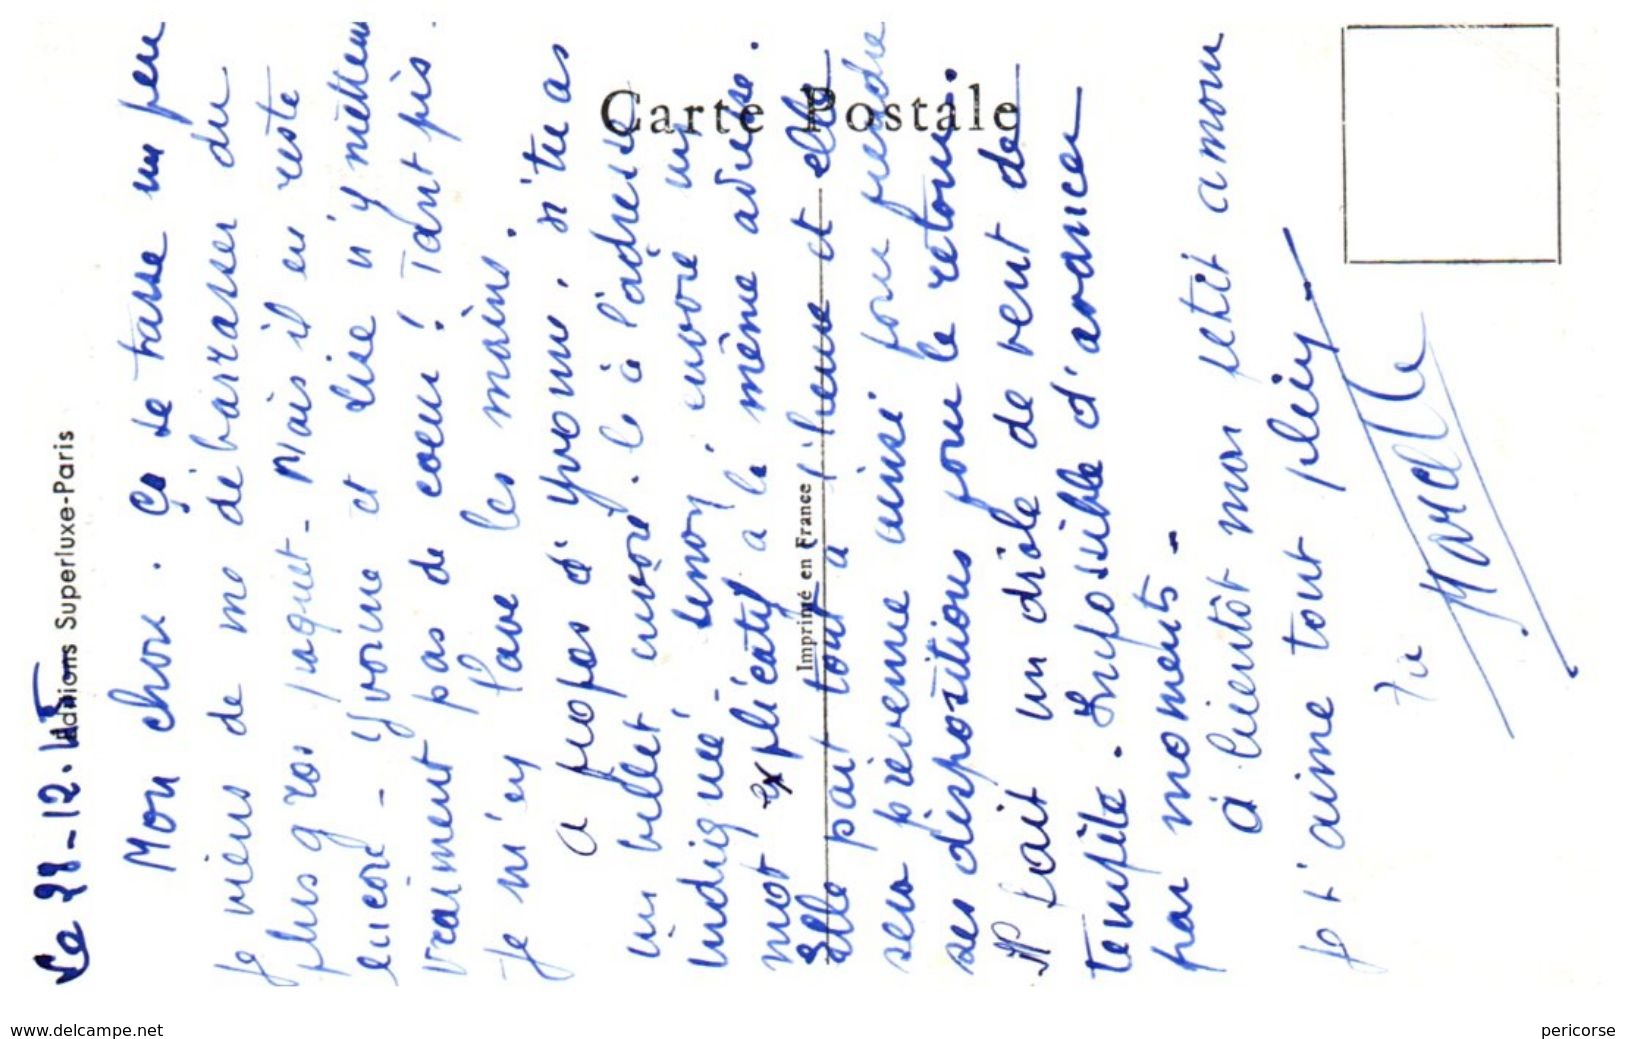 Le 28-12.45
Editions Superluxe-Paris
Carte Postale
Imprimé en France
Mon chou. ça se tasse un peu
Je viens de me débarrasser du
plus gros paquet - Mais il en reste
encore - Yvonne et Lise n'y mettent
vraiment pas de coeur! Tant pis.
Je m'en lave les mains.
A propos d'Yvonne, si tu as
un billet envoie le à l'adresse
indiquée. Senon, envoie un
mot explicatif à la même adresse.
Elle part tout à l'heure et elle
sera prévenue ainsi pour prendre
ses dispositions pour le retour.
Il fait un drôle de vent de
tempête. Impossible d'avancer
par moments -
à bientôt mon petit amour
Je t'aime tout plein -
Ta
Marcelle
www.delcampe.net
pericorse